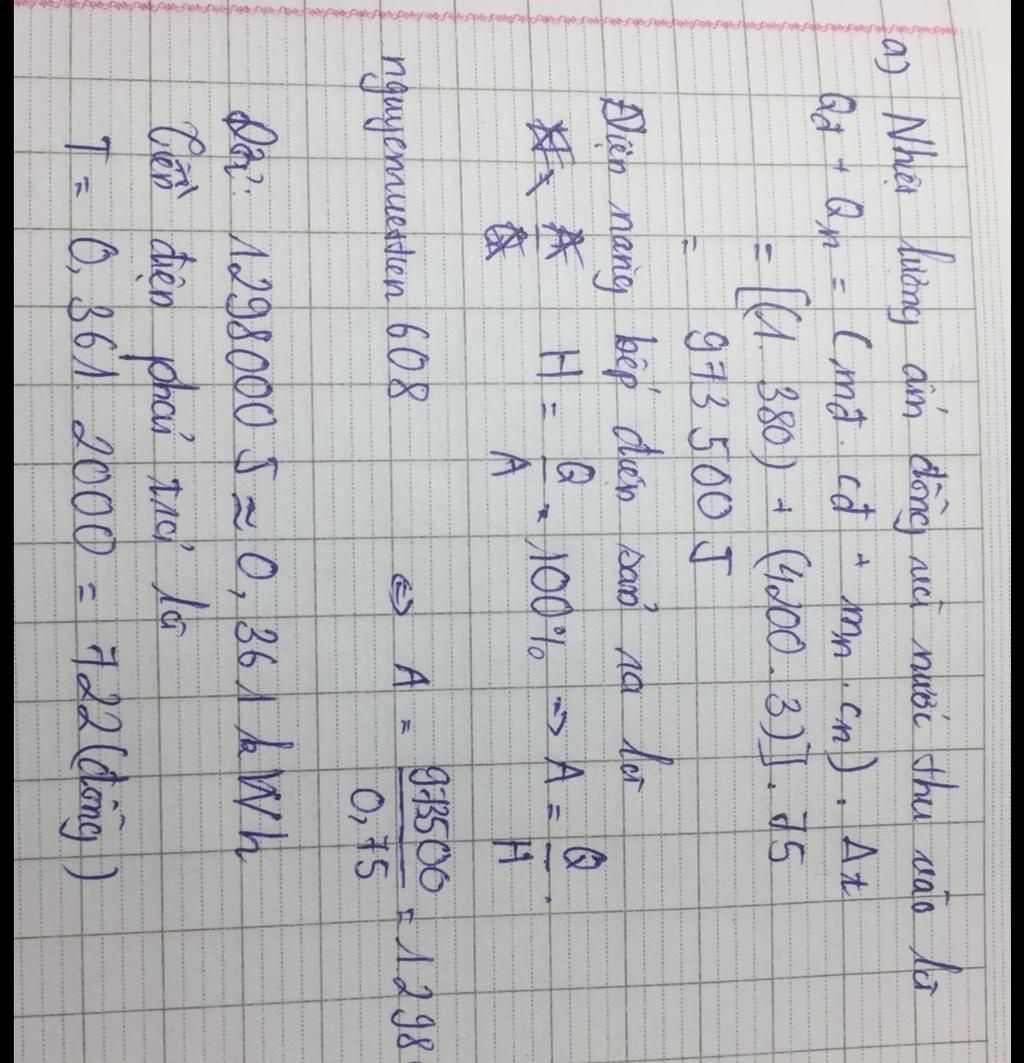 a) Nhiệt lượng ấm đồng với nước thu vào là
Qđ + Qn = (mđ.cđ + mn.cn). Δt
= [(1. 380) + (4200.3)]. 75
= 973 500 J
Điện năng bếp điện toả ra là
H = Q/A . 100% => A = Q/H
nguyenvietten 608 <=> A = 973500/0,75 = 1298
Đổi: 1298000 J ≈ 0,361 kWh
Tiền điện phải trả là
T = 0,361. 2000 = 722 (đồng)